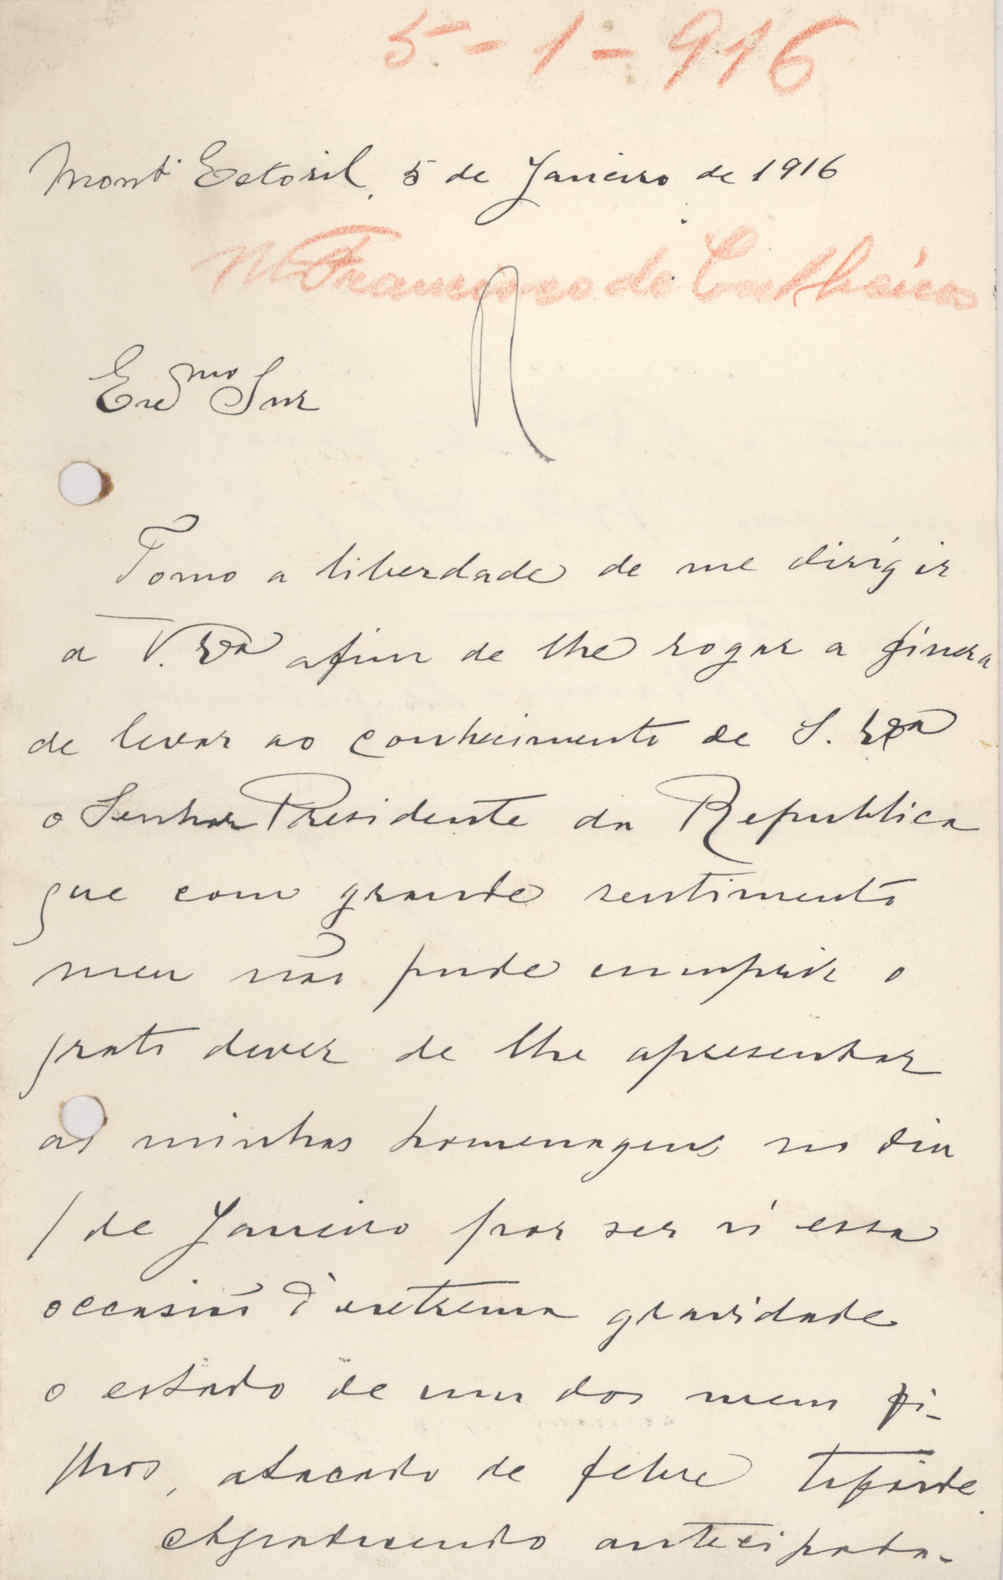 5-1-916
Mont' Estoril, 5 de Janeiro de 1916
Francisco de Calheiros
Exc.mo Snr
Tomo a liberdade de me dirigir
a V. Exa afim de lhe rogar a fineza
de levar ao conhecimento de S. Exa
o Senhor Presidente da Republica
que com grande sentimento
meu não pude cumprir o
grato dever de lhe apresentar
as minhas homenagens no dia
1 de Janeiro por ser n'essa
occasião d'extrema gravidade
o estado de um dos meus fi-
lhos, atacado de febre tifoide.
Agradecendo antecipada-